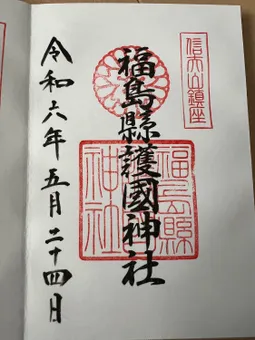 信夫山鎮座
福島縣護國神社
福島縣
神社
令和六年五月二十四日